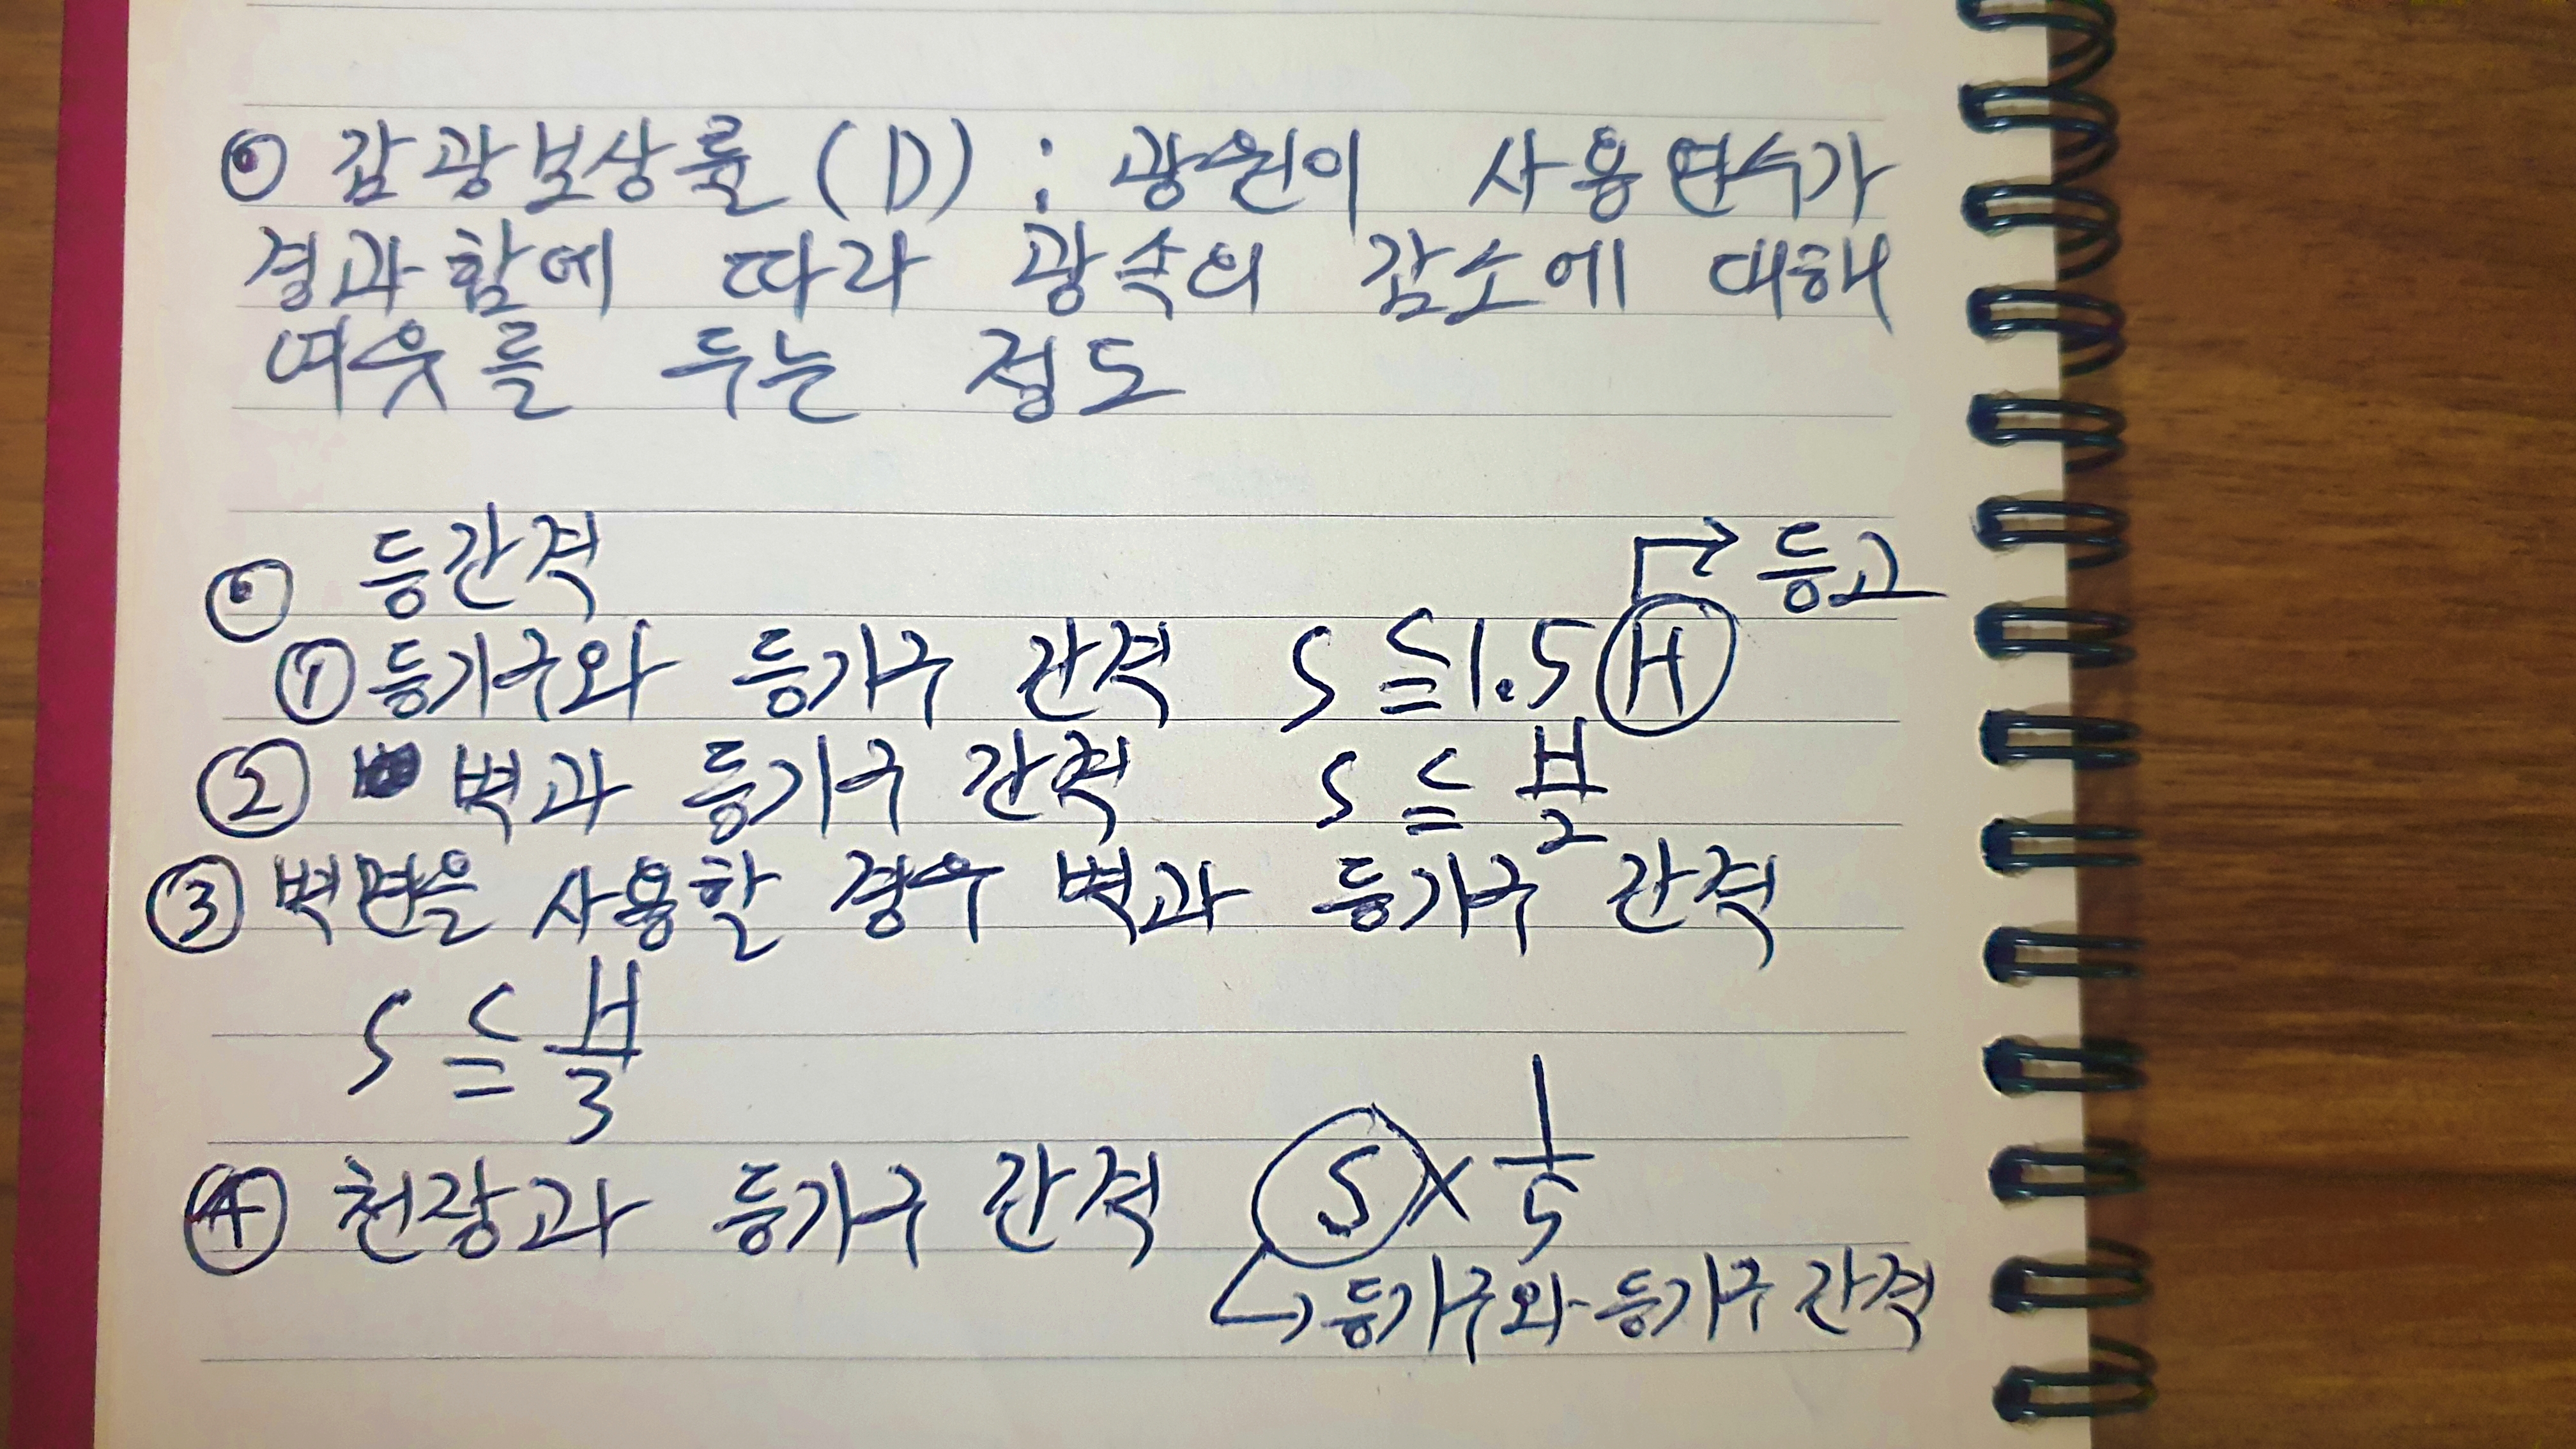 ⊙ 감광보상률 (D) : 광원이 사용연수가
경과함에 따라 광속의 감소에 대해
여유를 두는 정도
⊙ 등간격
→ 등고
① 등기구와 등기구 간격 S ≦ 1.5 H
② 벽과 등기구 간격 S ≦ H/2
③ 벽면을 사용할 경우 벽과 등기구 간격
S ≦ H/3
④ 천장과 등기구 간격 S × 1/5
↳ 등기구와 등기구 간격